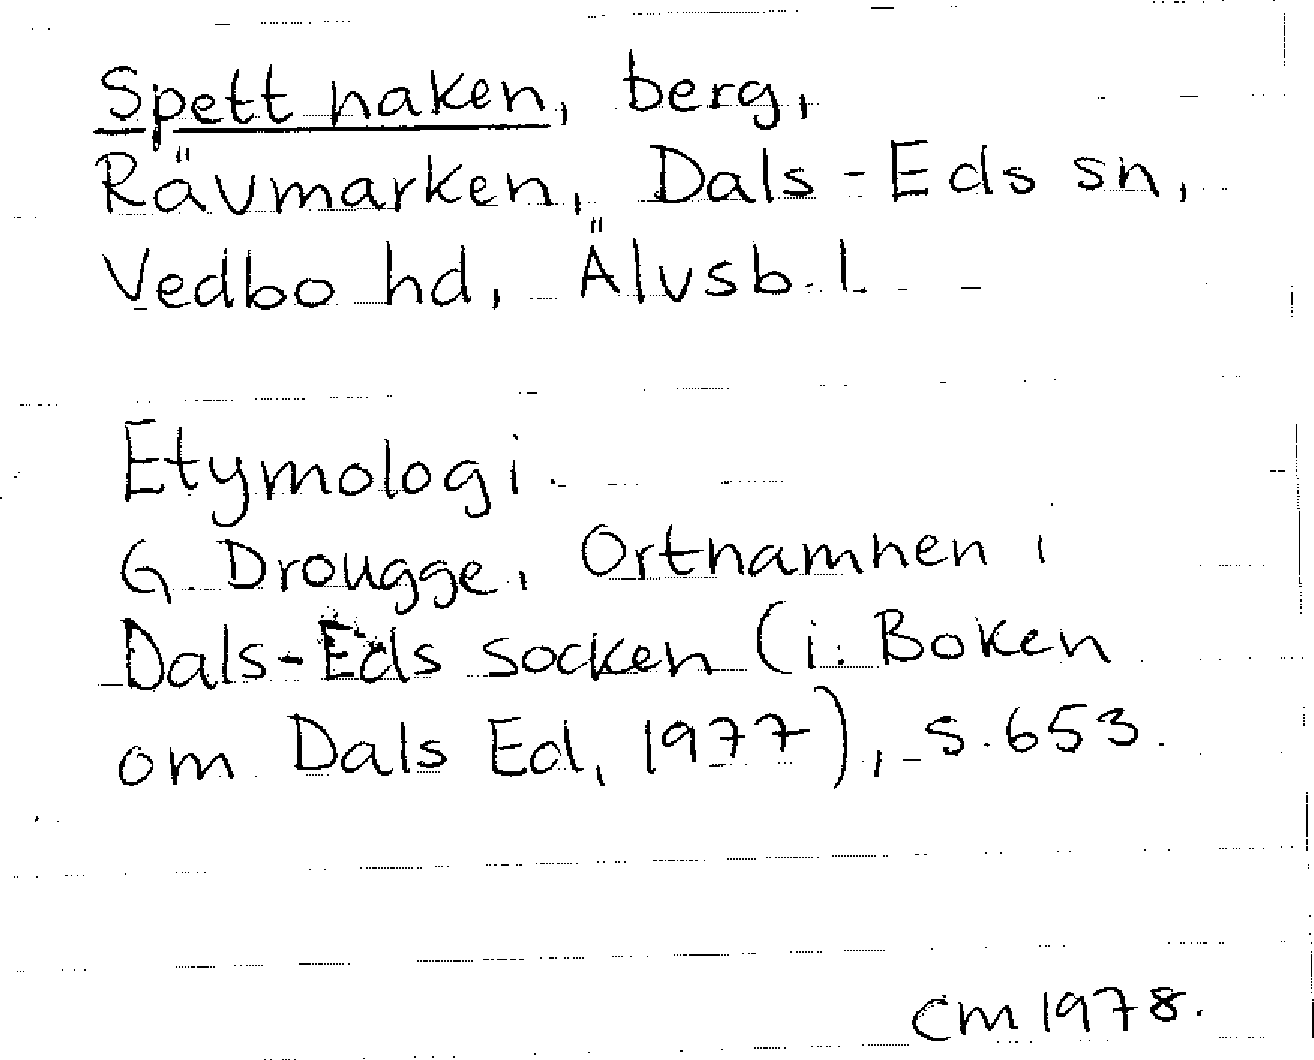 Spetthaken, berg,
Rävmarken, Dals-Eds sn,
Vedbo hd, Älvsb. l.
Etymologi.
G. Drougge, Ortnamnen i
Dals-Eds socken (i: Boken
om Dals Ed, 1977), s. 653.
CM 1978.